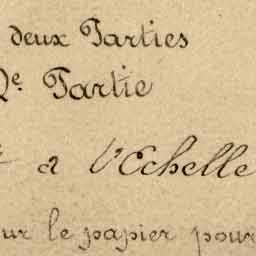 deux Parties
2e. Partie
à l'Echelle
sur le papier pour